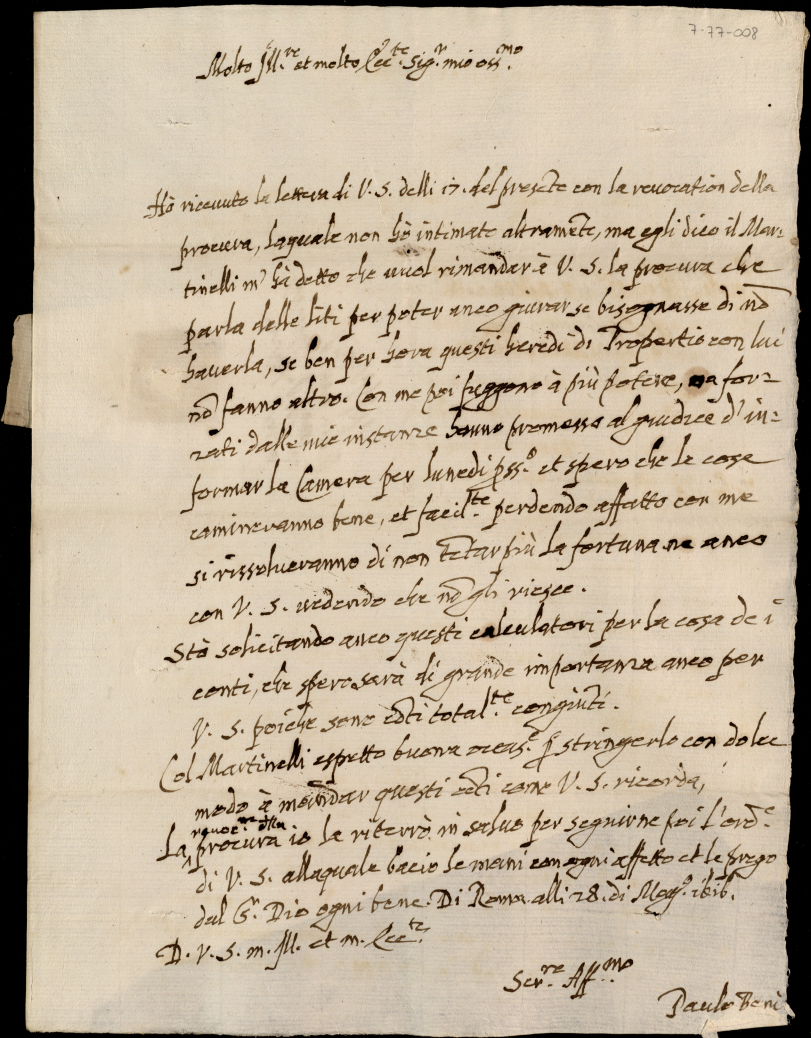 7-77-008
Molto Ill.re et molto Ecc.te Sig.r mio oss.mo
Hò ricevuto la lettera di V. S. delli 17. del presẽte con la revocation della
procura, laquale non hò intimate altramẽte, ma egli dico il Mar=
tinelli m' hà detto che vuol rimandar à V. S. la procura che
parla delle liti per poter anco giurar se bisognasse di nõ
haverla, se ben per hora questi heredi di Propertio con lui
nõ fanno altro. Con me poi fuggono à più potere, ma for=
zati dalle mie instanze hanno promesso al giudice d' in=
formar la Camera per lunedi pss.o et spero che le cose
camineranno bene, et facil.te perdendo affatto con me
si rissolveranno di non tẽtar più la fortuna ne anco
con V. S. vedendo che nõ gli riesce.
Stò solicitando anco questi calculatori per la cosa de i
conti, che spero sarà di grande importanza anco per
V. S. poiche sono cõti total.te congiũti.
Col Martinelli espetto buona occas.e p stringerlo con dolce
modo à mandar questi cõti come V. S. ricorda,
revoc.ne della
La procura io la riterrò in salvo per seguirne poi l'ord.e
di V. S. allaquale bacio le mani con ogni affetto et le prego
dal S.r Dio ogni bene. Di Roma alli 28. di Mag.o 1616.
D. V. S. m. Ill. et m. Ecc.te
Ser.re Aff.mo
Paulo Beni